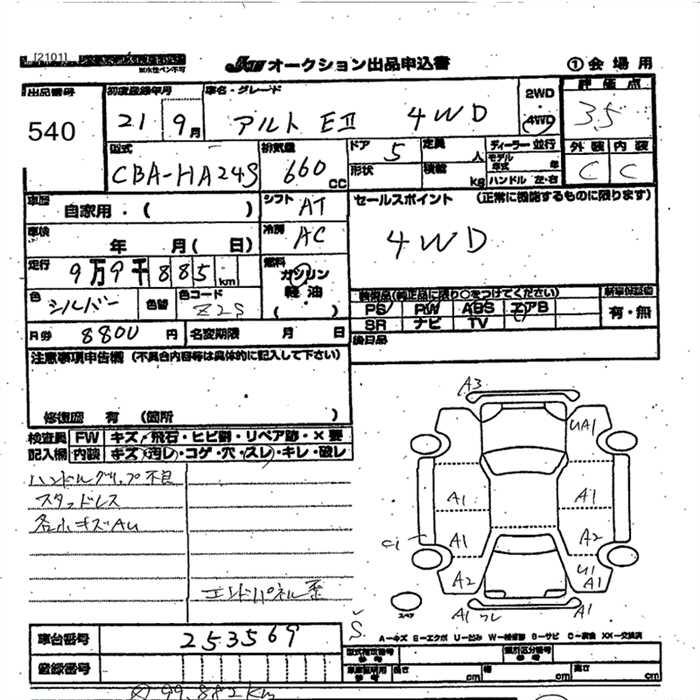 [2101]
耐水性ペン不可
JAU オークション出品申込書
①会場用
出品番号 初度登録年月 車名・グレード 2WD 評価点
540 21 9月 アルト EⅡ 4WD 4WD 3.5
型式 排気量 ドア 定員 ディーラー・並行 外装 内装
CBA-HA24S 660 CC 5 人 モデル年式 年 C C
形状 積載 kg ハンドル 左・右
車歴 自家用・( ) シフト AT セールスポイント (正常に機能するものに限ります)
車検 年 月( 日) 冷房 AC 4WD
走行 9万9千885km 燃料 ガソリン
軽油
( )
色 シルバー 色替 色コード Z2S
装備品(純正品に限り○をつけてください) 新車保証書
PS PW ABS エアB 有・無
SR ナビ TV
R券 8800円 名変期限 月 日 後日品
注意事項申告欄(不具合内容等は具体的に記入して下さい)
修復歴 有 (箇所 )
検査員 FW キズ・飛石・ヒビ割・リペア跡・×要
記入欄 内装 キズ・汚レ・コゲ・穴・スレ・キレ・破レ
ハンドルグリップ不良
スタッドレス
各小キズAU
エンドパネル歪
A3
UA1
A1 A1
Ci A1 A2
A2 U1 A1
A1 A1
スペア
A-キズ E-エクボ U-凹み W-補修跡 S-サビ C-腐食 XX-交換済
車台番号 253569
登録番号
型式指定番号 類別区分番号
参考 参考
長さ cm 幅 cm 高さ cm
99,882km